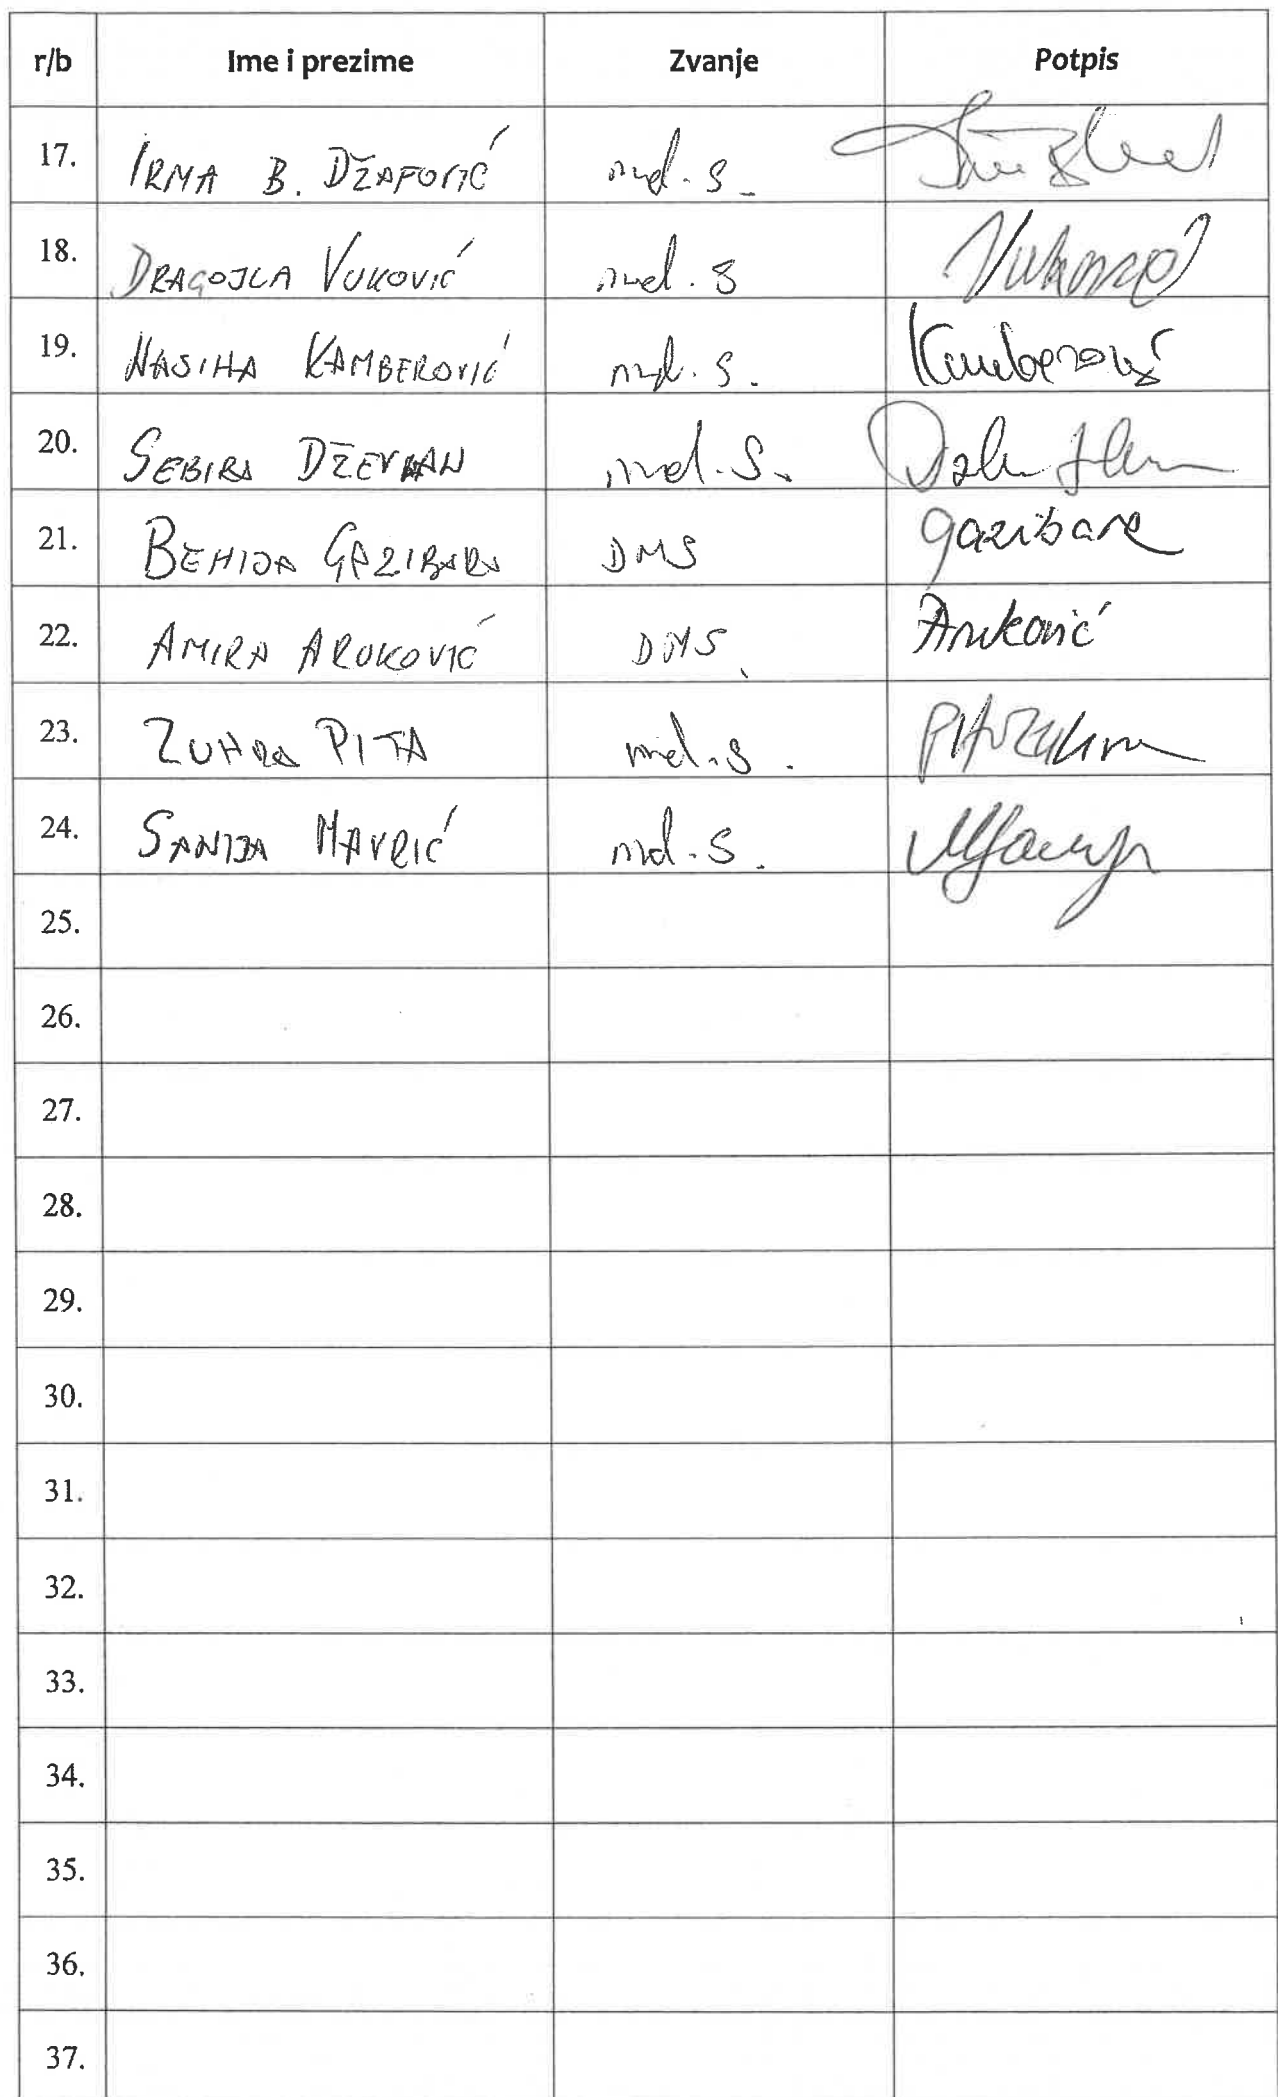 r/b Ime i prezime Zvanje Potpis
17. IRMA B. DŽAFOVIĆ med. s.
18. DRAGOJLA VUKOVIĆ med. s Vuković
19. NASIHA KAMBEROVIĆ med. s. Kamberović
20. SEBIRA DŽEVLAN med. s.
21. BEHIJA GAZIBARA DMS Gazibara
22. AMIRA ARUKOVIĆ DMS Aruković
23. ZUHRA PITA med. s. Pita Zuhra
24. SANIJA MAVRIĆ med. s.
25.
26.
27.
28.
29.
30.
31.
32.
33.
34.
35.
36.
37.